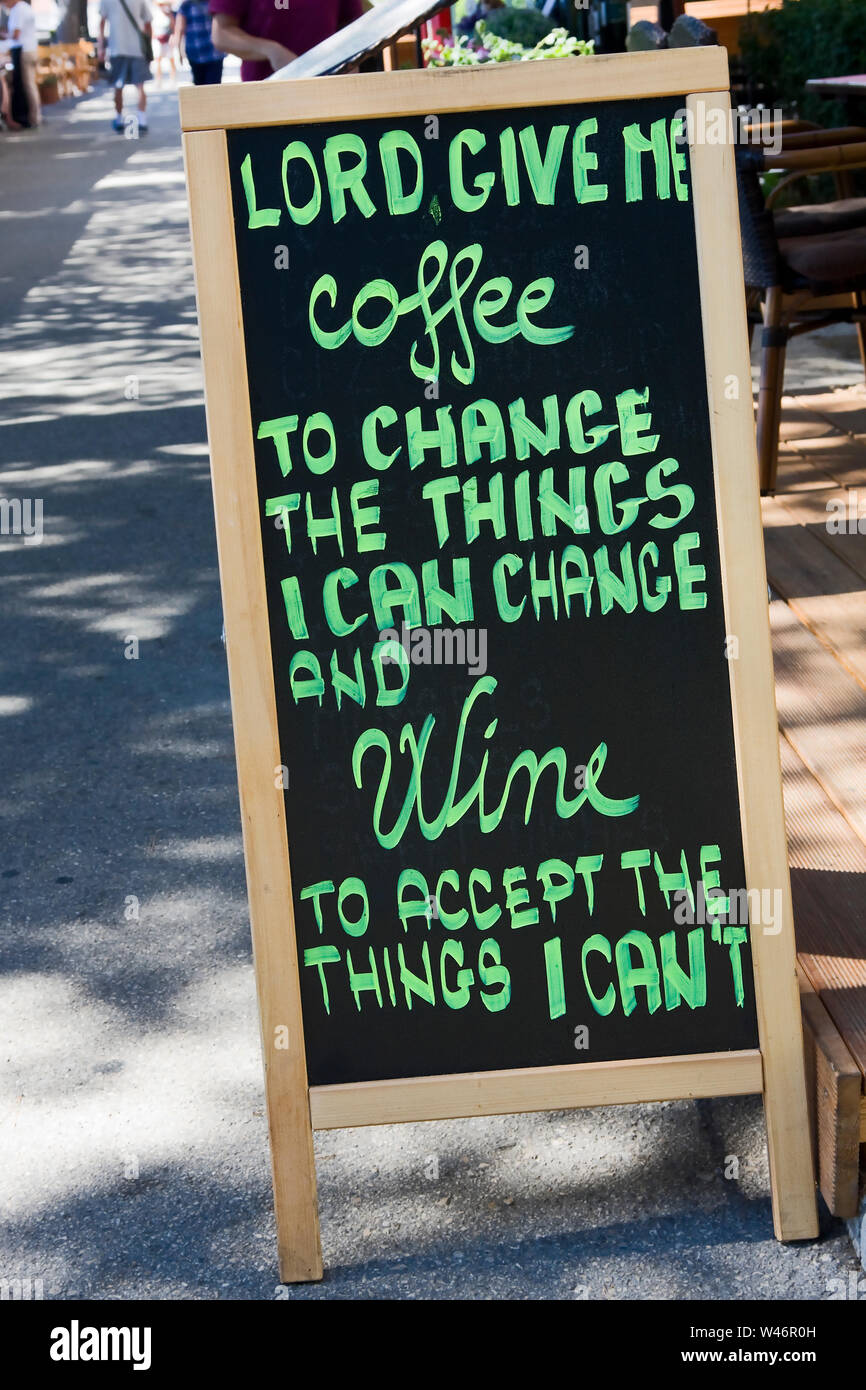 LORD, GIVE ME
coffee
TO CHANGE
THE THINGS
I CAN CHANGE
AND
Wine
TO ACCEPT THE
THINGS I CAN'T
alamy
Image ID: W46R0H
www.alamy.com